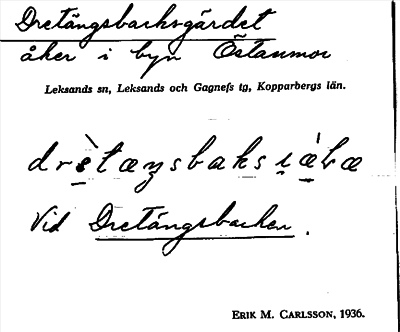 Dretängsbacksgärdet
åker i byn Östanmor
Leksands sn, Leksands och Gagnefs tg, Kopparbergs län.
Vid Dretängsbacken.
ERIK M. CARLSSON, 1936.